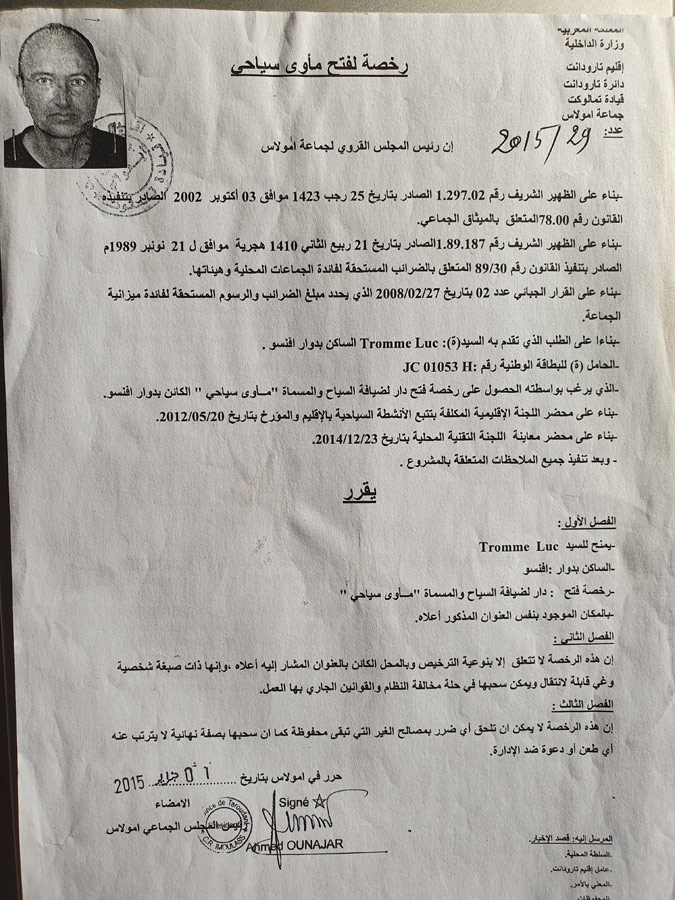 المملكة المغربية
وزارة الداخلية
إقليم تارودانت
دائرة تارودانت
قيادة تمالوكت
جماعة امولاس
عدد: 2015/29
رخصة لفتح مأوى سياحي
إن رئيس المجلس القروي لجماعة امولاس
-بناء على الظهير الشريف رقم 1.297.02 الصادر بتاريخ 25 رجب 1423 موافق 03 أكتوبر 2002 الصادر بتنفيذه
القانون رقم 78.00المتعلق بالميثاق الجماعي.
-بناء على الظهير الشريف رقم 1.89.187الصادر بتاريخ 21 ربيع الثاني 1410 هجرية موافق ل 21 نونبر 1989م
الصادر بتنفيذ القانون رقم 89/30 المتعلق بالضرائب المستحقة لفائدة الجماعات المحلية وهيناتها.
-بناء على القرار الجبائي عدد 02 بتاريخ 2008/02/27 الذي يحدد مبلغ الضرائب والرسوم المستحقة لفائدة ميزانية
الجماعة.
-بناءا على الطلب الذي تقدم به السيد(ة): Tromme Luc الساكن بدوار افنسو .
-الحامل (ة) للبطاقة الوطنية رقم :JC 01053 H
-الذي يرغب بواسطته الحصول على رخصة فتح دار لضيافة السياح والمسماة "مــأوى سياحي " الكائن بدوار افنسو.
-بناء على محضر اللجنة الإقليمية المكلفة بتتبع الأنشطة السياحية بالإقليم والمؤرخ بتاريخ 2012/05/20.
-بناء على محضر معاينة اللجنة التقنية المحلية بتاريخ 2014/12/23.
- وبعد تنفيذ جميع الملاحظات المتعلقة بالمشروع .
يقرر
الفصل الأول :
-يمنح للسيد Tromme Luc
-الساكن بدوار :افنسو
-رخصة فتح : دار لضيافة السياح والمسماة "مــأوى سياحي "
-بالمكان الموجود بنفس العنوان المذكور أعلاه.
الفصل الثاني :
إن هذه الرخصة لا تتعلق إلا بنوعية الترخيص وبالمحل الكائن بالعنوان المشار إليه أعلاه ،وإنها ذات صبغة شخصية
وغي قابلة لانتقال ويمكن سحبها في حلة مخالفة النظام والقوانين الجاري بها العمل.
الفصل الثالث :
إن هذه الرخصة لا يمكن ان تلحق أي ضرر بمصالح الغير التي تبقى محفوظة كما ان سحبها بصفة نهائية لا يترتب عنه
أي طعن أو دعوة ضد الإدارة.
حرر في امولاس بتاريخ 01 2015
الامضاء
رئيس المجلس الجماعي امولاس
Signé
Ahmed OUNAJAR
C.R. IMOULASS
المرسل إليه: قصد الإخبار.
-السلطة المحلية.
-عامل إقليم تارودانت.
-المعني بالأمر.
-المحفوظات